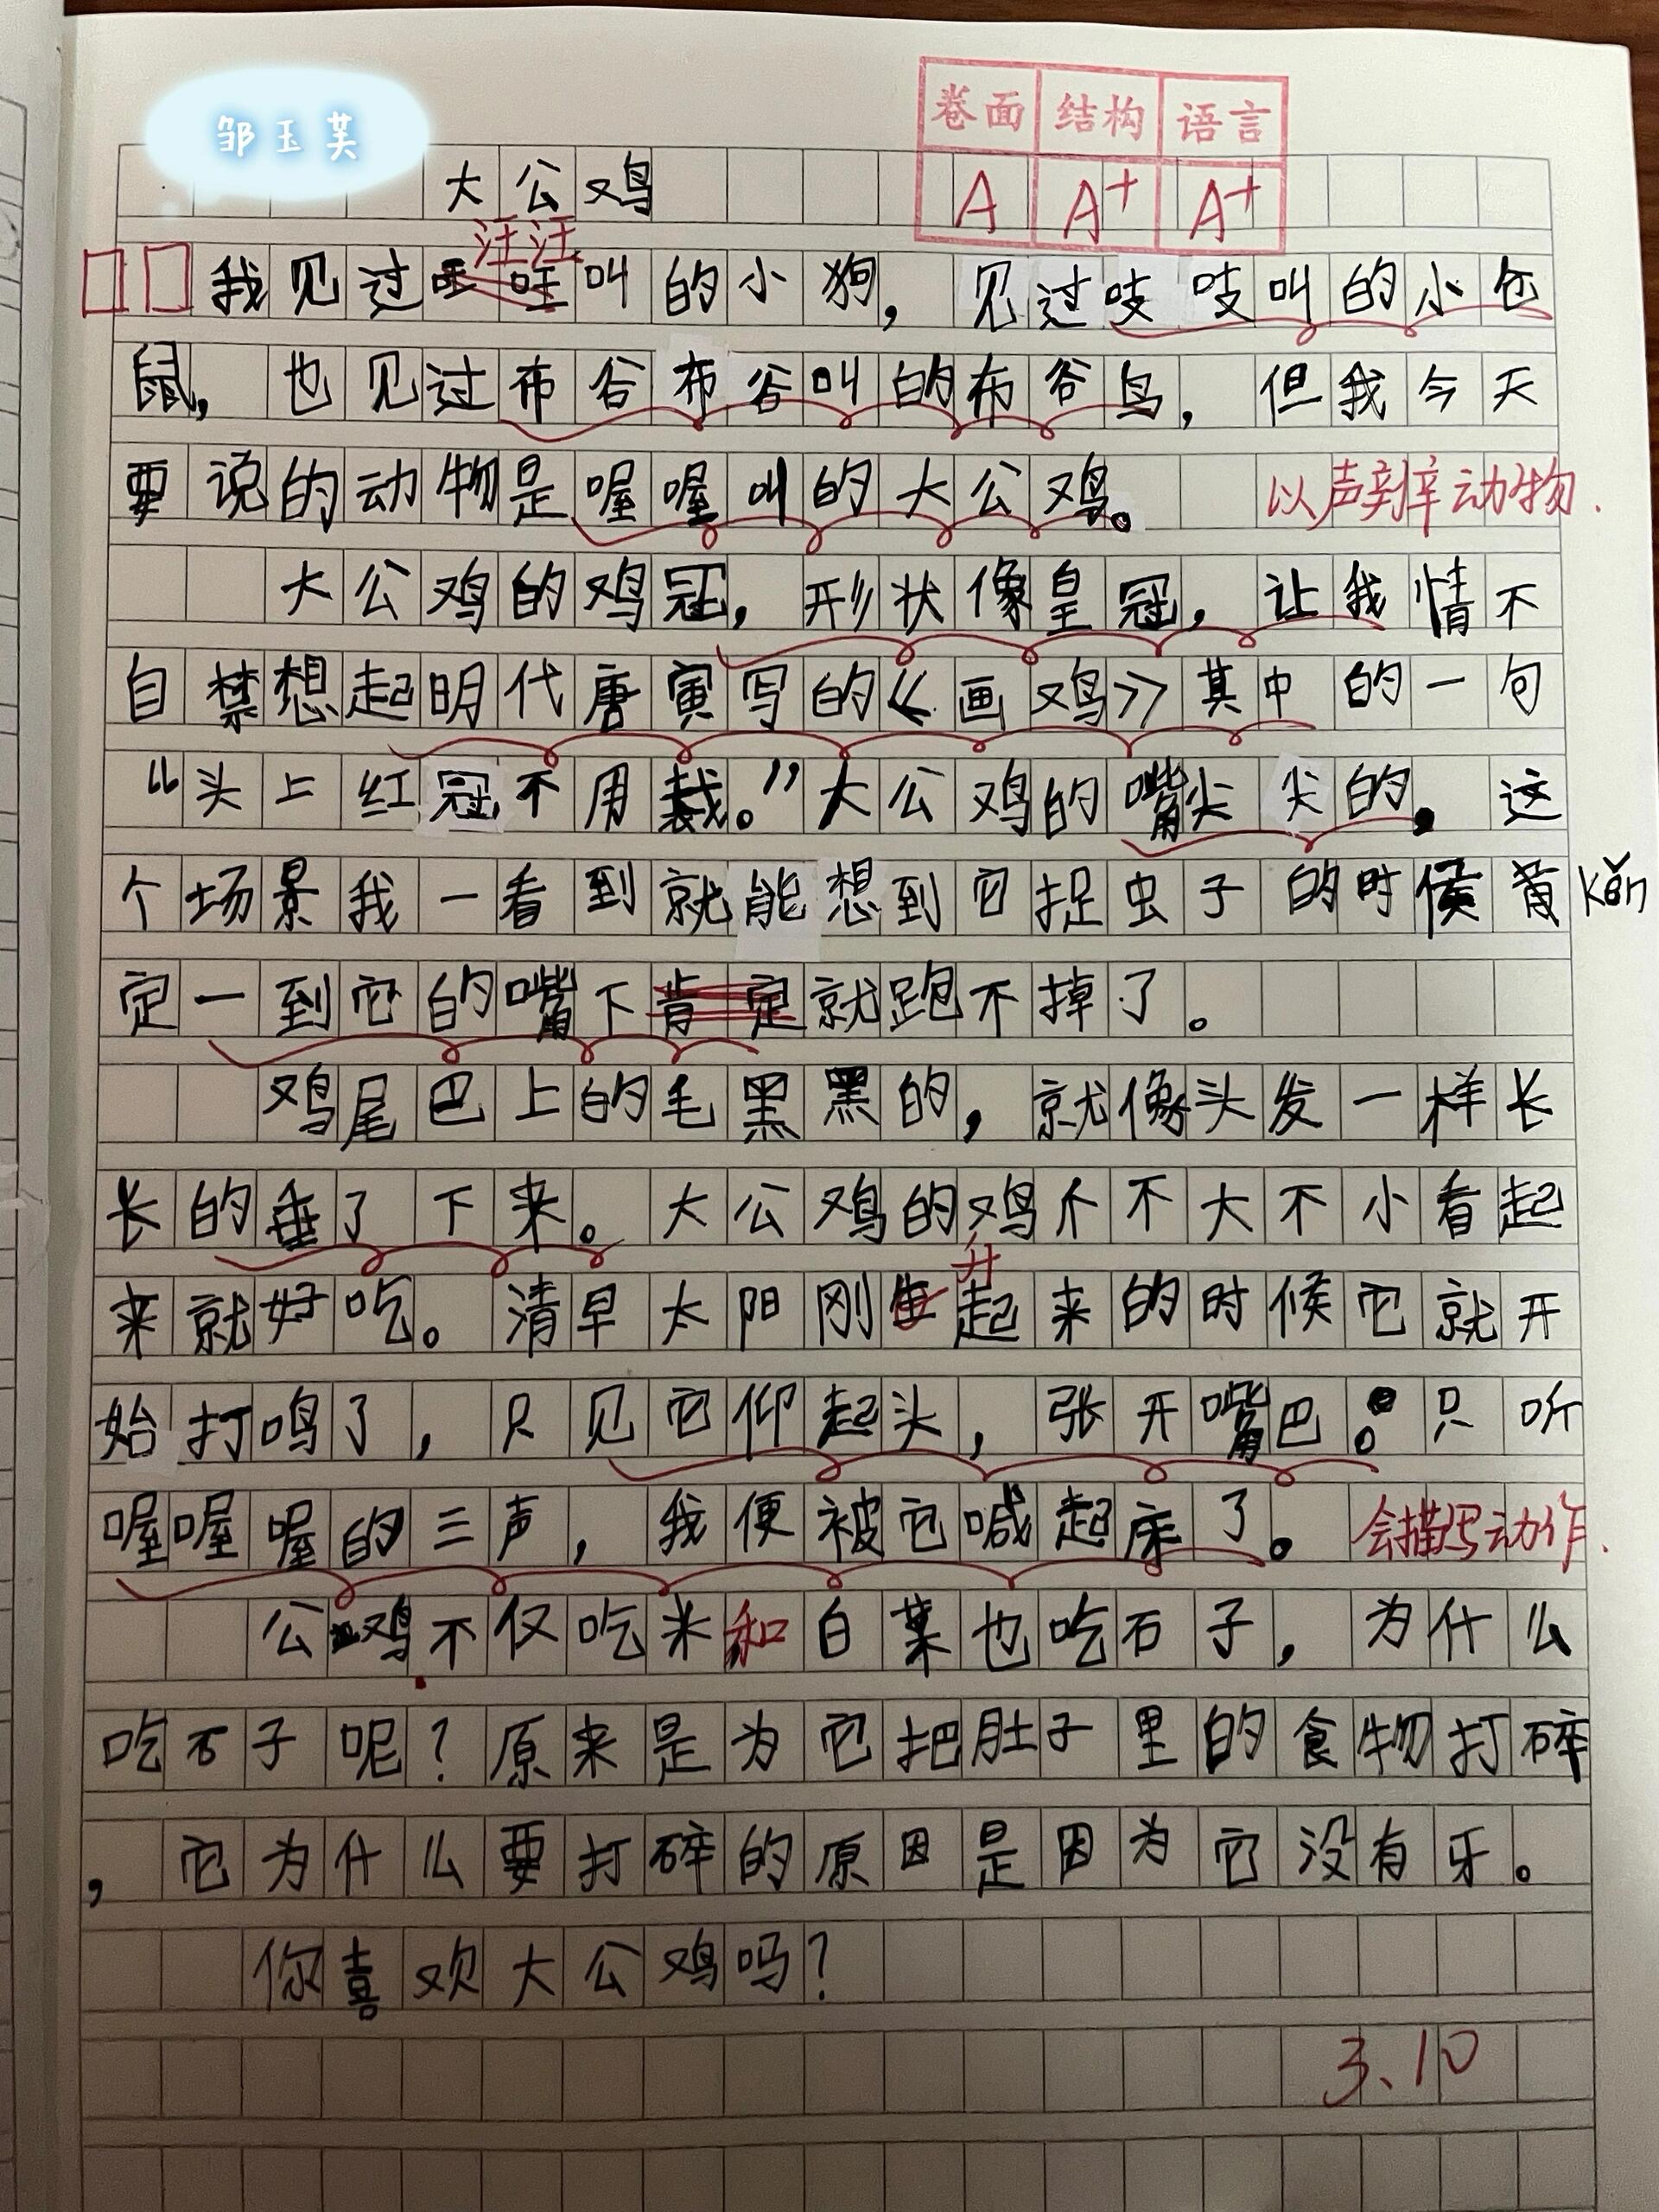 邹玉芙
卷面 结构 语言
A A+ A+
大公鸡
汪汪
我见过哇哇叫的小狗，见过吱吱叫的小仓
鼠，也见过布谷布谷叫的布谷鸟，但我今天
要说的动物是喔喔叫的大公鸡。
以声辨动物.
大公鸡的鸡冠，形状像皇冠，让我情不
自禁想起明代唐寅写的《画鸡》其中的一句
“头上红冠不用裁。”大公鸡的嘴尖尖的，这
个场景我一看到就能想到它捉虫子的时候肯 kěn
定一到它的嘴下肯定就跑不掉了。
鸡尾巴上的毛黑黑的，就像头发一样长
长的垂了下来。大公鸡的鸡个不大不小看起
升
来就好吃。清早太阳刚生起来的时候它就开
始打鸣了，只见它仰起头，张开嘴巴。只听
喔喔喔的三声，我便被它喊起床了。
会描写动作.
公鸡不仅吃米和白菜也吃石子，为什么
吃石子呢？原来是为它把肚子里的食物打碎
，它为什么要打碎的原因是因为它没有牙。
你喜欢大公鸡吗？
3、10